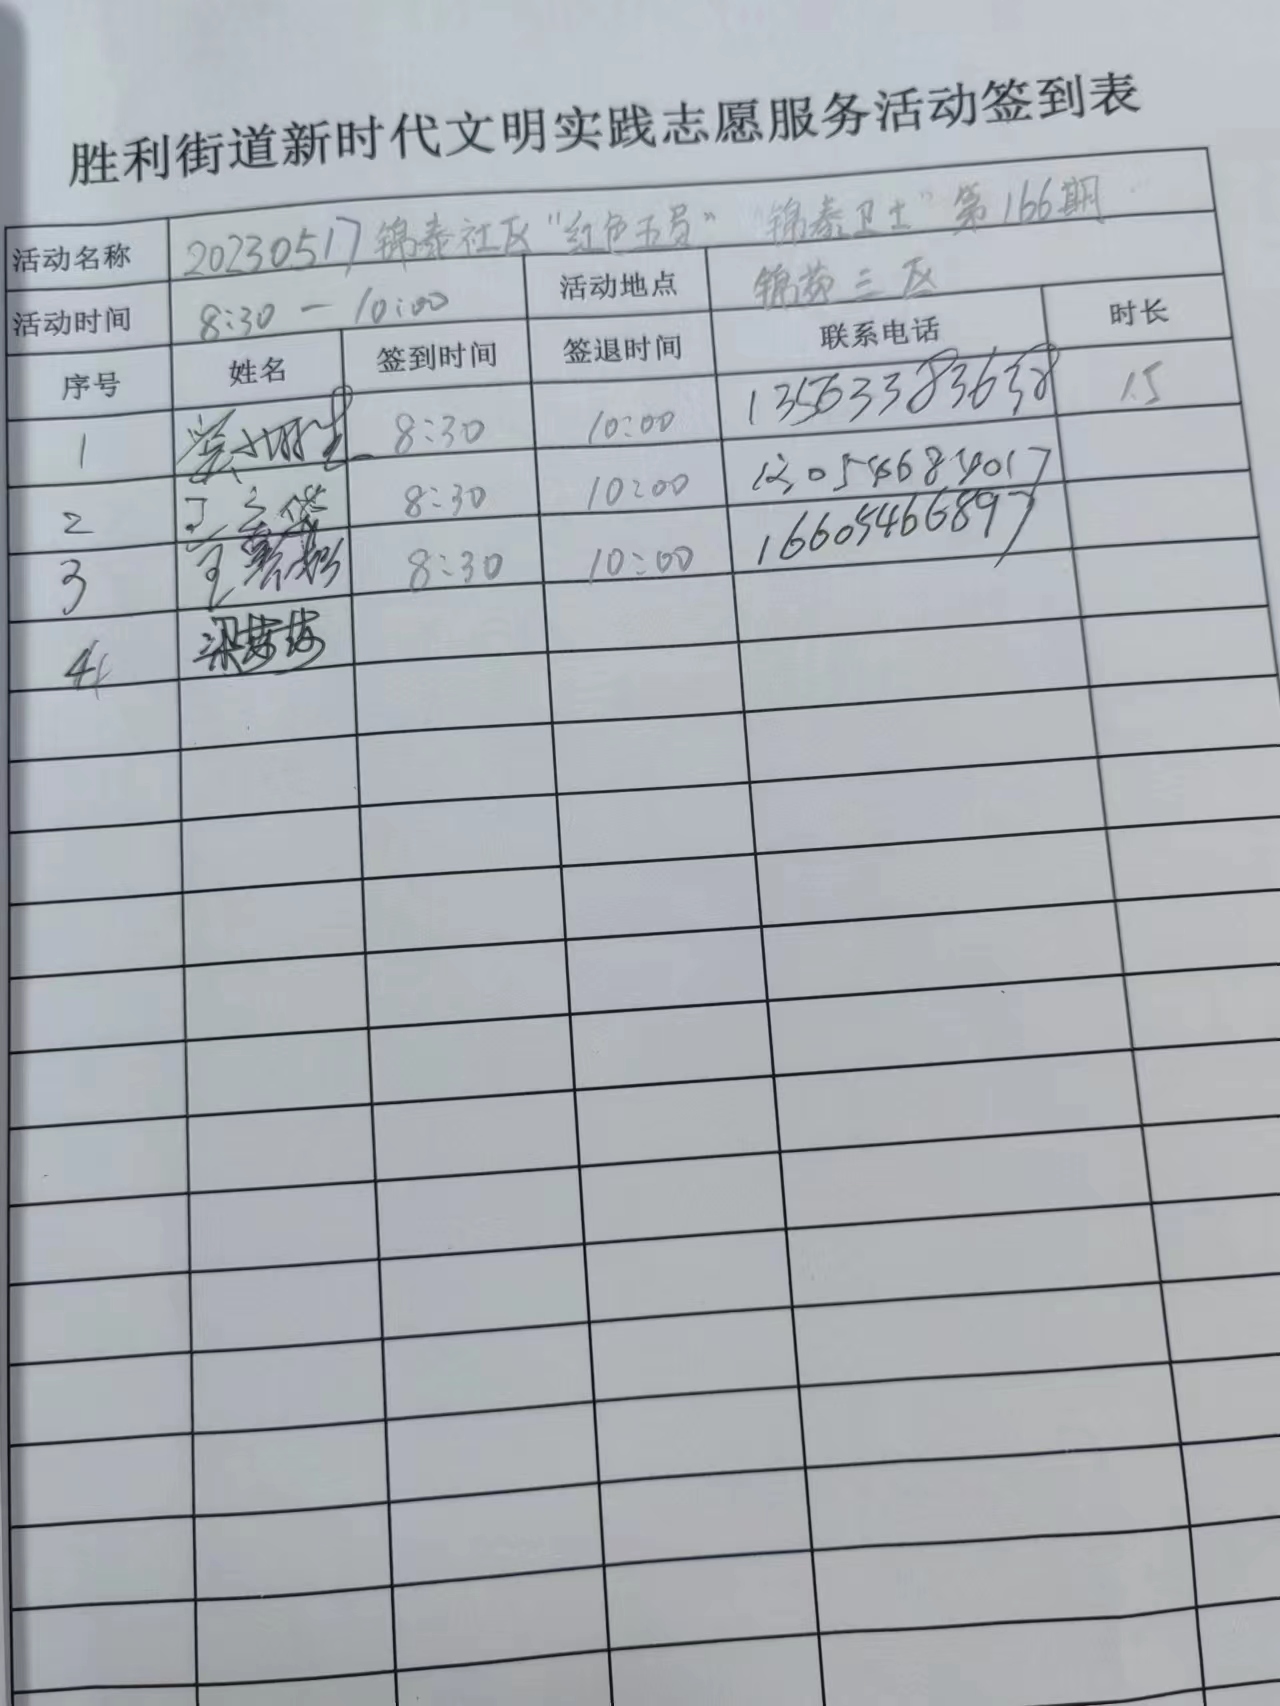 胜利街道新时代文明实践志愿服务活动签到表
活动名称 20230517锦泰社区“红色五员” “锦泰卫士”第166期
活动时间 8:30 — 10:00 活动地点 锦苑三区
序号 姓名 签到时间 签退时间 联系电话 时长
1 8:30 10:00 13563383638 1.5
2 8:30 10:00
3 王 8:30 10:00 16605466897
4 梁